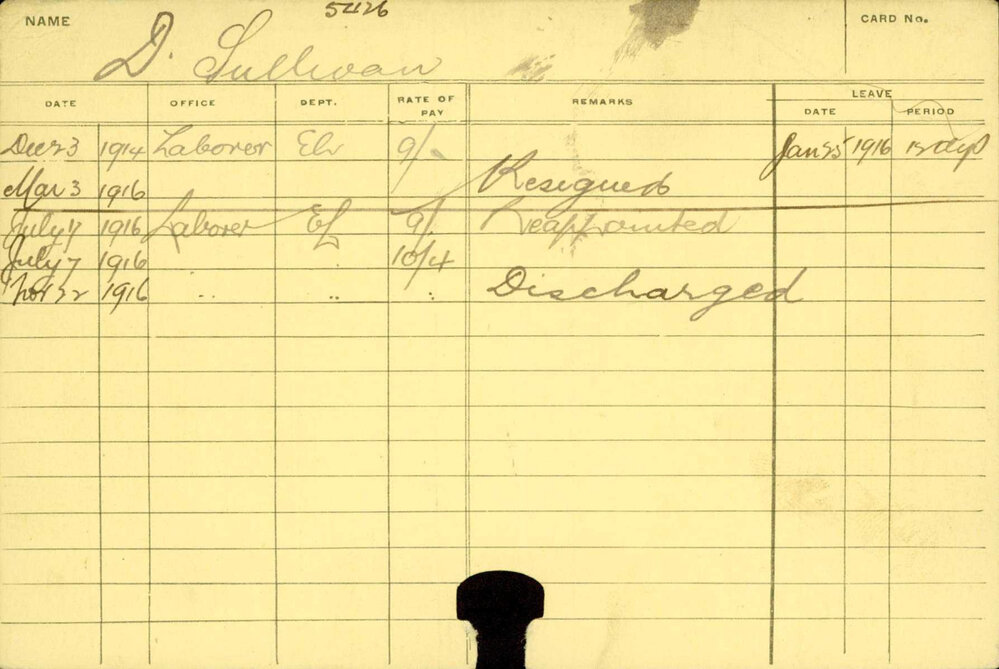 NAME 5426 CARD No.
D. Sullivan
DATE OFFICE DEPT. RATE OF PAY REMARKS LEAVE
DATE PERIOD
Dec 23 1914 Laborer El 9/- Jan 25 1916 12 days
Mar 3 1916 Resigned
July 7 1916 Laborer El 9/- Reappointed
July 7 1916 10/4
Nov 22 1916 .. .. .. Discharged